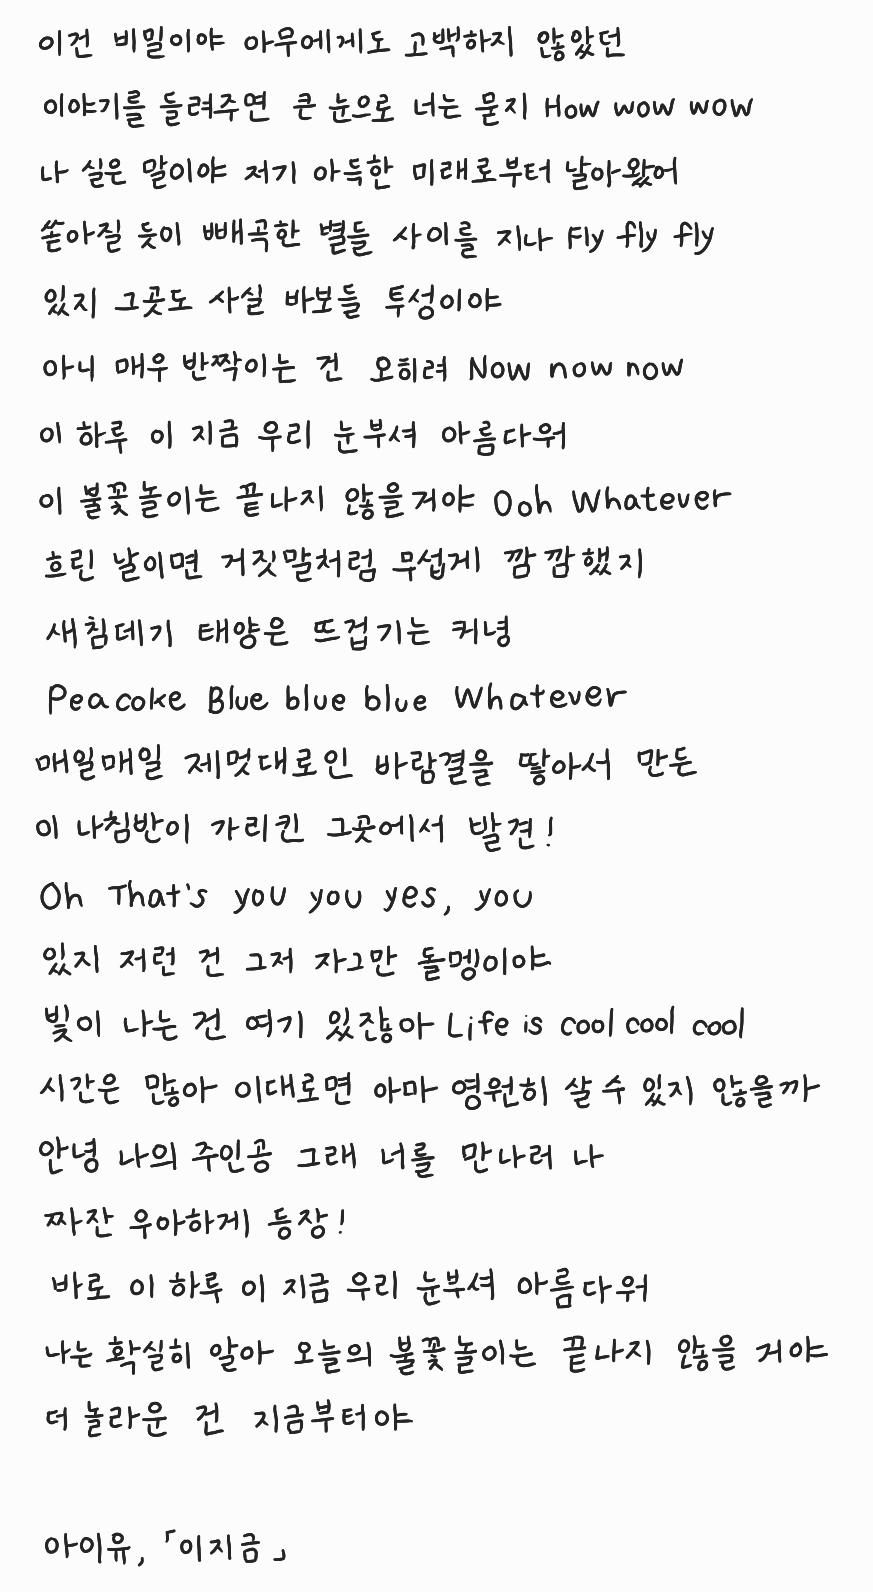 이건 비밀이야 아무에게도 고백하지 않았던
이야기를 들려주면 큰 눈으로 너는 묻지 How wow wow
나 실은 말이야 저기 아득한 미래로부터 날아왔어
쏟아질 듯이 빼곡한 별들 사이를 지나 Fly fly fly
있지 그곳도 사실 바보들 투성이야
아니 매우 반짝이는 건 오히려 Now now now
이 하루 이 지금 우리 눈부셔 아름다워
이 불꽃놀이는 끝나지 않을거야 Ooh Whatever
흐린 날이면 거짓말처럼 무섭게 깜깜했지
새침데기 태양은 뜨겁기는 커녕
Peacoke Blue blue blue Whatever
매일매일 제멋대로인 바람결을 땋아서 만든
이 나침반이 가리킨 그곳에서 발견!
Oh That's you you yes, you
있지 저런 건 그저 자그만 돌멩이야
빛이 나는 건 여기 있잖아 Life is cool cool cool
시간은 많아 이대로면 아마 영원히 살 수 있지 않을까
안녕 나의 주인공 그래 너를 만나러 나
짜잔 우아하게 등장!
바로 이 하루 이 지금 우리 눈부셔 아름다워
나는 확실히 알아 오늘의 불꽃놀이는 끝나지 않을 거야
더 놀라운 건 지금부터야
아이유, 「이지금」